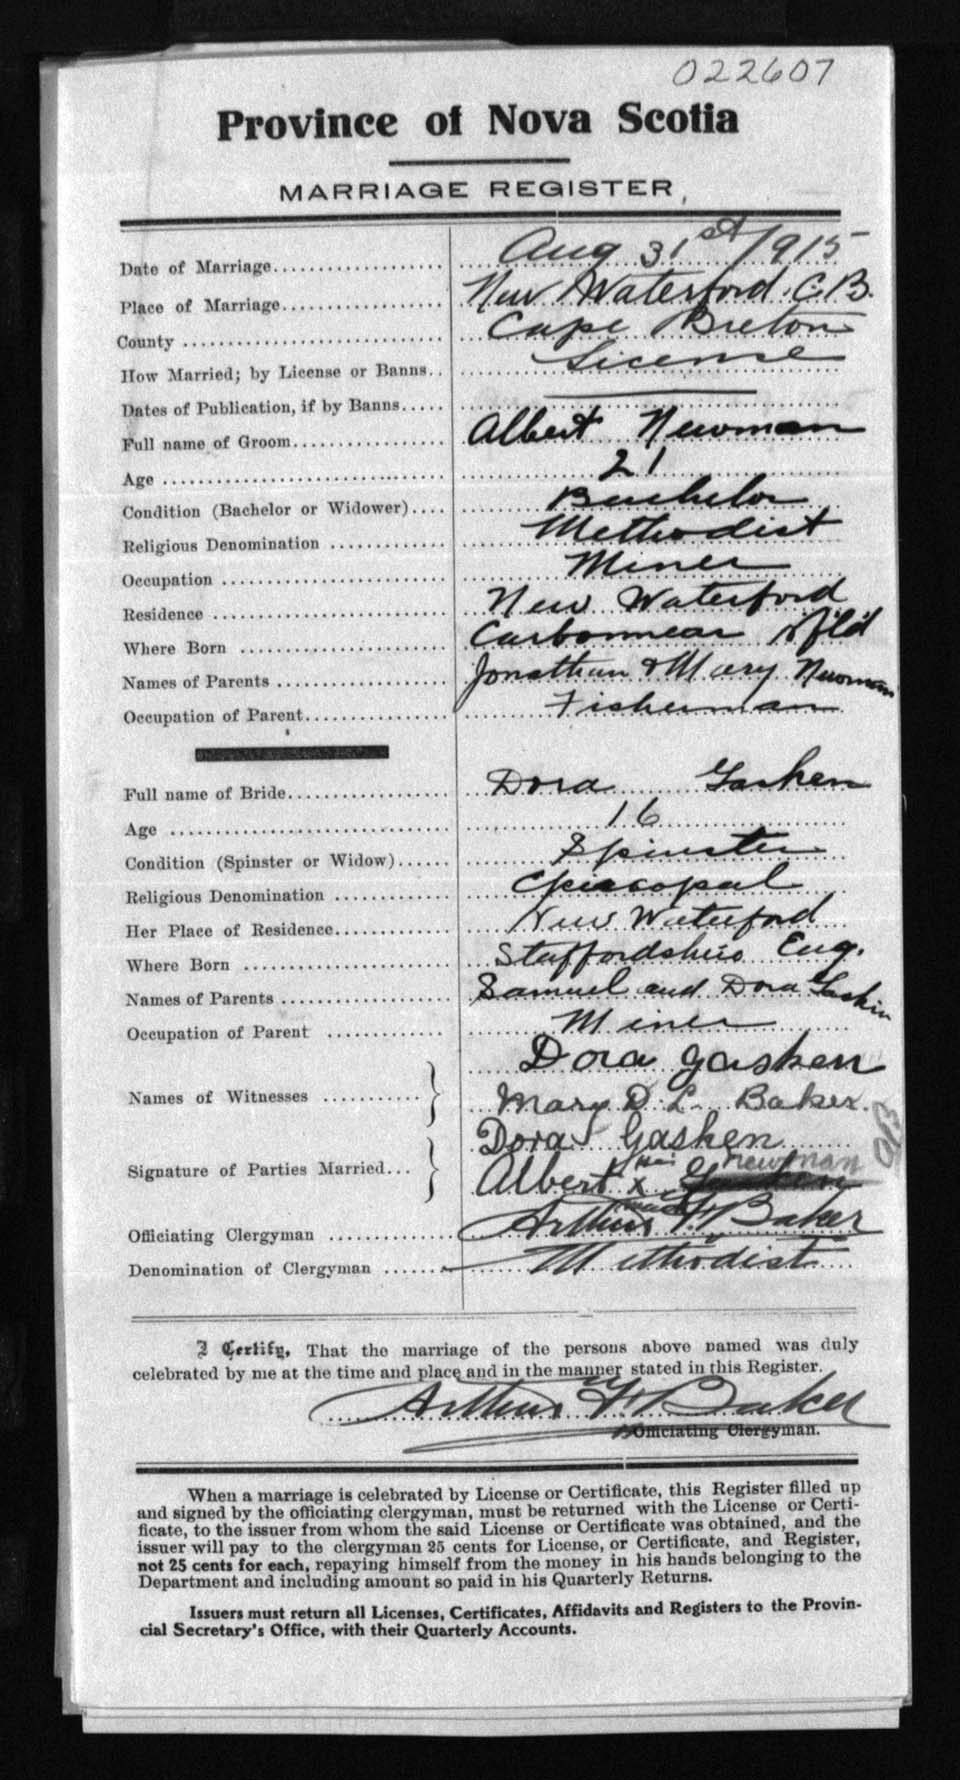 022607
Province of Nova Scotia
MARRIAGE REGISTER
Date of Marriage Aug 31st 1915
Place of Marriage New Waterford. C.B.
County Cape Breton
How Married; by License or Banns License
Dates of Publication, if by Banns
Full name of Groom Albert Newman
Age 21
Condition (Bachelor or Widower) Bachelor
Religious Denomination Methodist
Occupation Miner
Residence New Waterford
Where Born Carbonnear Nf'l'd
Names of Parents Jonathan & Mary Newman
Occupation of Parent Fisherman
Full name of Bride Dora Gasken
Age 16
Condition (Spinster or Widow) Spinster
Religious Denomination Episcopal
Her Place of Residence New Waterford
Where Born Staffordshire Eng.
Names of Parents Samuel and Dora Gaskin
Occupation of Parent Miner
Dora Gasken
Names of Witnesses } Mary D. L. Baker.
Dora Gasken
Signature of Parties Married } Albert his x mark Newman
Officiating Clergyman Arthur F. Baker
Denomination of Clergyman Methodist
I Certify, That the marriage of the persons above named was duly
celebrated by me at the time and place and in the manner stated in this Register.
Arthur F Baker
Officiating Clergyman.
When a marriage is celebrated by License or Certificate, this Register filled up
and signed by the officiating clergyman, must be returned with the License or Certi-
ficate, to the issuer from whom the said License or Certificate was obtained, and the
issuer will pay to the clergyman 25 cents for License, or Certificate, and Register,
not 25 cents for each, repaying himself from the money in his hands belonging to the
Department and including amount so paid in his Quarterly Returns.
Issuers must return all Licenses, Certificates, Affidavits and Registers to the Provin-
cial Secretary's Office, with their Quarterly Accounts.